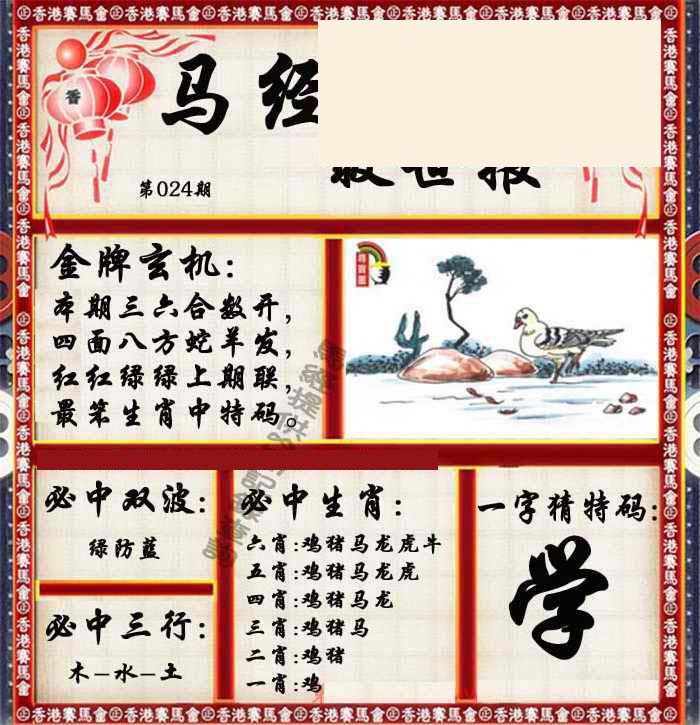 香港賽馬會
马经
救世报
第024期
香
金牌玄机:
本期三六合数开,
四面八方蛇羊发,
红红绿绿上期联,
最笨生肖中特码。
必中双波:
绿防蓝
必中三行:
木-水-土
必中生肖:
六肖:鸡猪马龙虎牛
五肖:鸡猪马龙虎
四肖:鸡猪马龙
三肖:鸡猪马
二肖:鸡猪
一肖:鸡
一字猜特码:
学